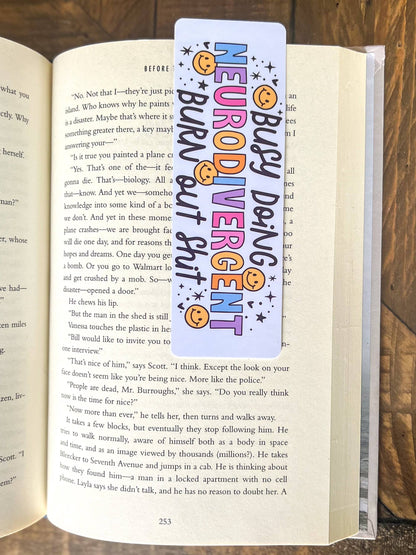 what you
ctly. Why
herself.
man?"
er, whose
had—
en miles
zen, liv-
Scott. "I
BEFORE
"No. Not that I—they're just pic
island. Who knows why he paints
words. Maybe that's where it
something greater there, a key mayb
answering your—"
"Is it true you painted a plane cr
"Yes. That's one of the—it fee
gonna die. That's—biology. All a
that—know. And yet we—someho
knowledge into some kind of a bo
we don't. And yet in these momen
plane crashes—we are brought fac
will die one day, and for reasons tha
hopes and dreams. One day you ge
a bomb. Or you go to Walmart lo
and get crushed by a mob. So—w
disaster—opened a door."
He chews his lip.
"But the man in the shed is still
Vanessa touches the plastic in he
"Bill would like to invite you to
one interview."
"That's nice of him," says Scott. "I think. Except the look on your
face doesn't seem like you're being nice. More like the police."
"People are dead, Mr. Burroughs," she says. "Do you really think
now is the time for nice?"
"Now more than ever," he tells her, then turns and walks away.
It takes a few blocks, but eventually they stop following him. He
tries to walk normally, aware of himself both as a body in space
and time, and as an image viewed by thousands (millions?). He takes
Bleecker to Seventh Avenue and jumps in a cab. He is thinking about
how they found him—a man in a locked apartment with no cell
phone. Layla says she didn't talk, and he has no reason to doubt her. A
253
BUSY DOING
NEURODIVERGENT
BURN OUT Shit